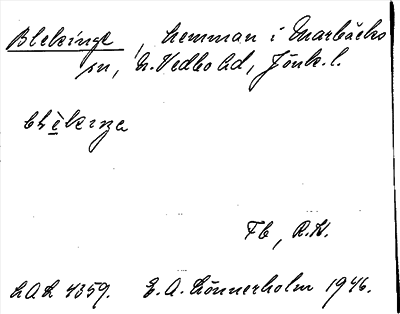 Blekinge, hemman i Marbäcks
sn, N. Vedbo hd, Jönk. l.
blèkinga
Fb, R.H.
LAL 4359. E. A. Lönnerholm 1946.